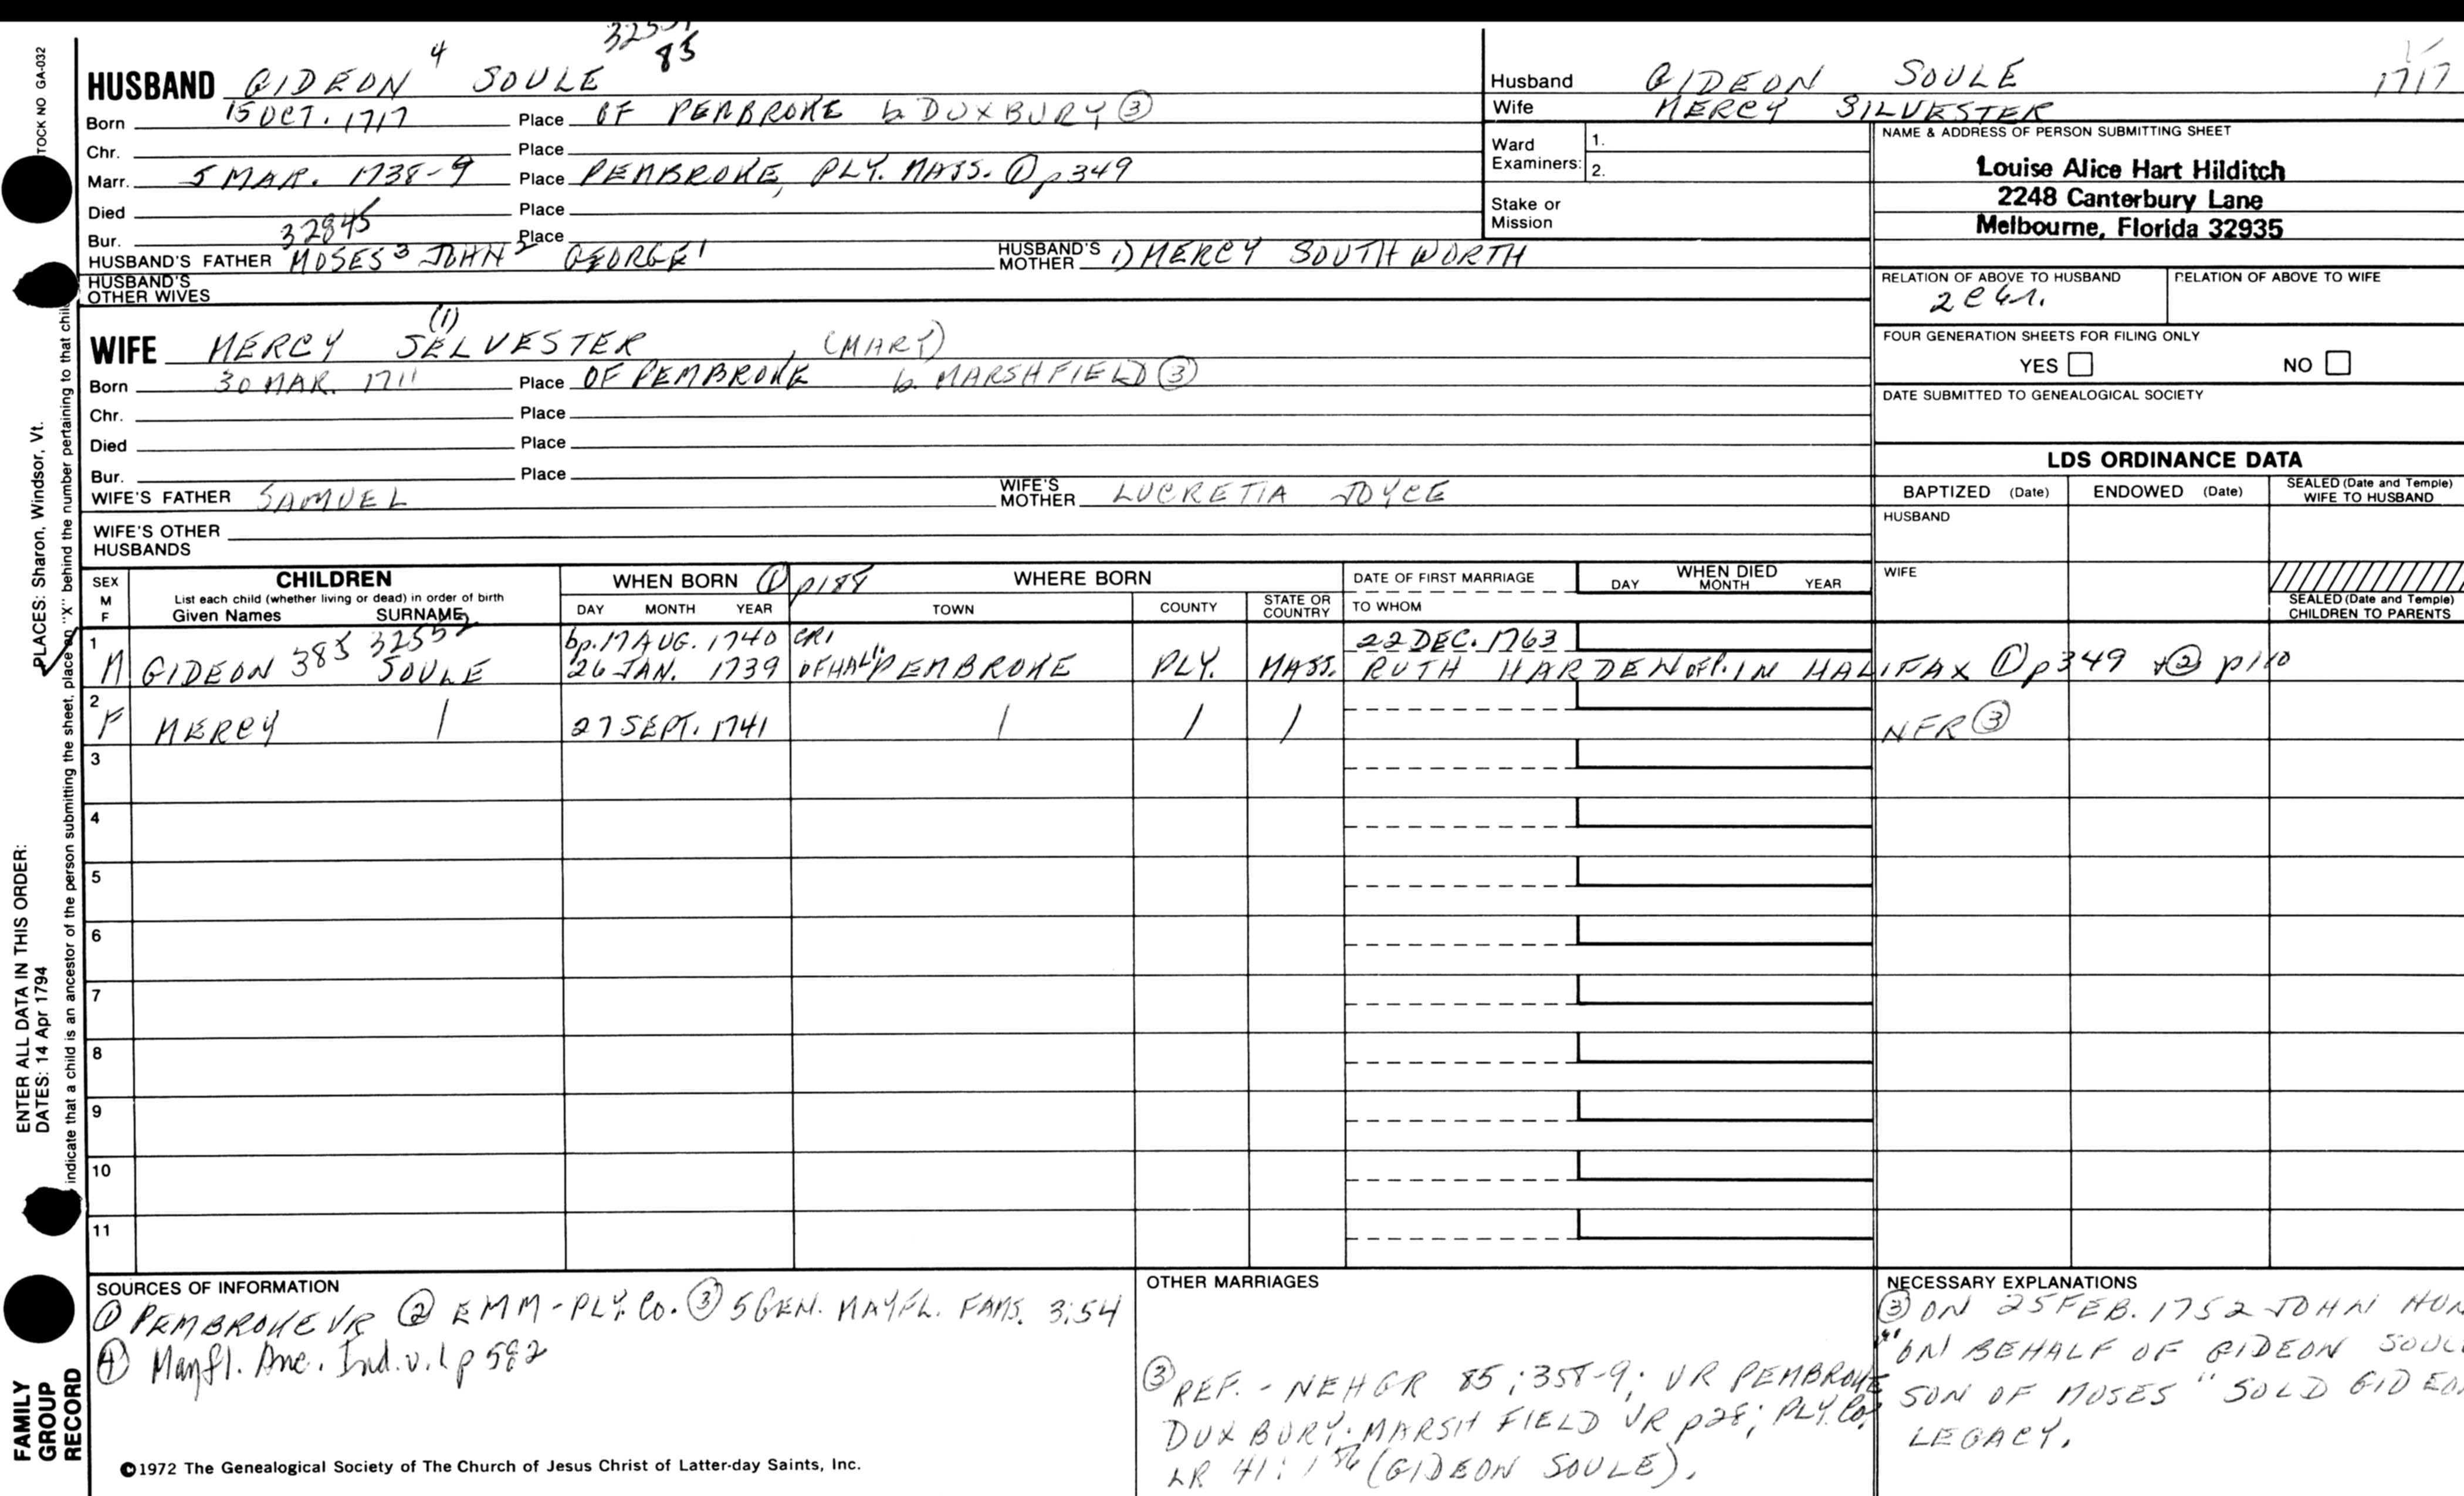 STOCK NO GA-032
85
HUSBAND GIDEON 4 SOULE
Born 15 OCT. 1717 Place OF PEMBROKE b. DUXBURY ③
Chr. Place
Marr. 5 MAR. 1738-9 Place PEMBROKE, PLY. MASS. ① p349
Died Place
32845
Bur. Place
HUSBAND'S FATHER MOSES 3 JOHN 2 GEORGE 1 HUSBAND'S MOTHER 1) MERCY SOUTHWORTH
HUSBAND'S OTHER WIVES
(1)
WIFE MERCY SELVESTER, (MARY)
Born 30 MAR. 1711 Place OF PEMBROKE b. MARSHFIELD ③
Chr. Place
Died Place
Bur. Place
WIFE'S FATHER SAMUEL WIFE'S MOTHER LUCRETIA JOYCE
WIFE'S OTHER HUSBANDS
Husband GIDEON SOULE 1717
Wife MERCY SILVESTER
Ward Examiners: 1.
2.
Stake or Mission
NAME & ADDRESS OF PERSON SUBMITTING SHEET
Louise Alice Hart Hilditch
2248 Canterbury Lane
Melbourne, Florida 32935
RELATION OF ABOVE TO HUSBAND RELATION OF ABOVE TO WIFE
FOUR GENERATION SHEETS FOR FILING ONLY
YES NO
DATE SUBMITTED TO GENEALOGICAL SOCIETY
LDS ORDINANCE DATA
BAPTIZED (Date) ENDOWED (Date) SEALED (Date and Temple) WIFE TO HUSBAND
HUSBAND
WIFE
SEALED (Date and Temple) CHILDREN TO PARENTS
SEX M F CHILDREN WHEN BORN ① p188 WHERE BORN DATE OF FIRST MARRIAGE WHEN DIED
List each child (whether living or dead) in order of birth
Given Names SURNAME DAY MONTH YEAR TOWN COUNTY STATE OR COUNTRY TO WHOM DAY MONTH YEAR
385 32552 bp. 17 AUG. 1740 CR1 22 DEC. 1763
1 M GIDEON SOULE 26 JAN. 1739 OF HAL. PEMBROKE PLY. MASS. RUTH HARDEN OF P. IN HALIFAX ① p349 + ② p110
2 F MERCY 27 SEPT. 1741 NFR ③
3
4
5
6
7
8
9
10
11
SOURCES OF INFORMATION
① PEMBROKE VR ② EMM-PLY. CO. ③ 5 GEN. MAYFL. FAMS. 3:54
④ Mayfl. Anc. Ind. v.1 p 582
OTHER MARRIAGES
③ REF. - NEHGR 85:358-9; VR PEMBROKE
DUXBURY; MARSHFIELD VR p28; PLY. Co.
LR 41:156 (GIDEON SOULE).
NECESSARY EXPLANATIONS
③ ON 25 FEB. 1752 JOHN
"ON BEHALF OF GIDEON SOULE
SON OF MOSES" SOLD GIDEON
LEGACY.
©1972 The Genealogical Society of The Church of Jesus Christ of Latter-day Saints, Inc.
PLACES: Sharon, Windsor, Vt.
ENTER ALL DATA IN THIS ORDER:
DATES: 14 Apr 1794
indicate that a child is an ancestor of the person submitting the sheet, place an "X" behind the number pertaining to that child
FAMILY
GROUP
RECORD